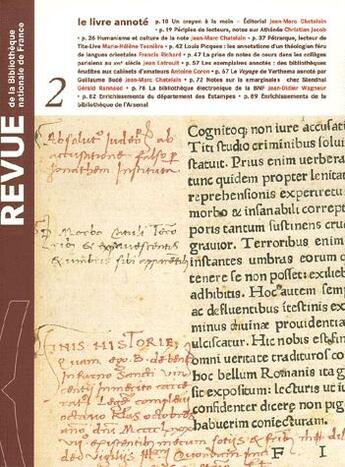 REVUE
de la Bibliothèque
nationale de France
2
le livre annoté
p. 10 Un crayon à la main – Éditorial Jean-Marc Chatelain
• p. 19 Périples de lecteurs, notes sur Athénée Christian Jacob
• p. 26 Humanisme et culture de la note Jean-Marc Chatelain • p. 37 Pétrarque, lecteur de
Tite-Live Marie-Hélène Tesnière • p. 42 Louis Picques : les annotations d'un théologien féru
de langues orientales Francis Richard • p. 47 La prise de notes de cours dans les collèges
parisiens au XVIe siècle Jean Letrouit • p. 57 Les exemplaires annotés : des bibliothèques
érudites aux cabinets d'amateurs Antoine Coron • p. 67 Le Voyage de Varthema annoté par
Guillaume Budé Jean-Marc Chatelain • p. 72 Notes sur la marginalia chez Stendhal
Gérald Rannaud • p. 78 La bibliothèque électronique de la BNF Jean-Didier Wagneur
• p. 82 Enrichissements du département des Estampes • p. 89 Enrichissements de la
bibliothèque de l'Arsenal
Absolut' Iudeor' ab
accusatione falso p
Jonathem instituta
Cognitoq; non iure accusati
Titi studio criminibus solui
statuit. Prius enim uerbera
tunc quidem propter lenitat
reprehensionis experiretu
morbo & insanabili corrept
poris tantum sustinens cruc
grauior. Terroribus enim
instantes umbras eorum q
tenere se non posset: exilieb
adhibitis. Hoc autem semp
ac defluentibus itestinis exi
minus diuinæ prouidentia
ulciscatur. Hic nobis est fini
omni ueritate tradituros co
hoc bellum Romanis ita g
sit expositum: lecturis ut iu
confidenter dicere non pig
habuerim coniecturam.
F I
Morbo
FINIS HISTORIE